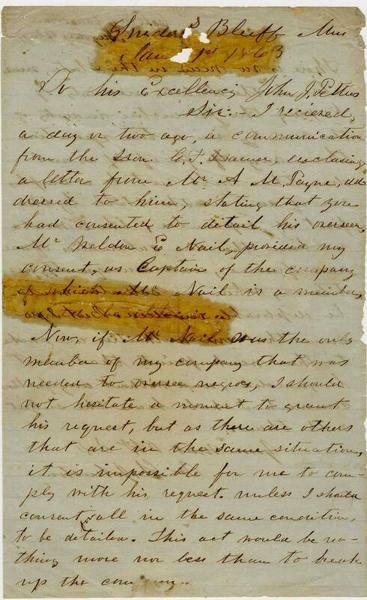 Snider's Bluff Miss
Jan 1st 1863
To his Excellency John J. Pettus
Sir:- I recieved,
a day or two ago, a communication
from the Hon. enclosing
a letter from Mr A. M. Payne, ad-
dressed to him, stating that you
had consented to detail his overseer,
Mr Weldon E Nail, provided my
consent, as Captain of the company
of which Mr Nail is a member,
Now, if Mr Nail was the only
member of my company that was
needed to oversee negroes, I should
not hesitate a moment to grant
his request, but as there are others
that are in the same situation,
it is impossible for me to com-
ply with his request, unless I should
consent, all in the same condition,
to be detailed. This act would be no-
thing more nor less than to break
up the company.